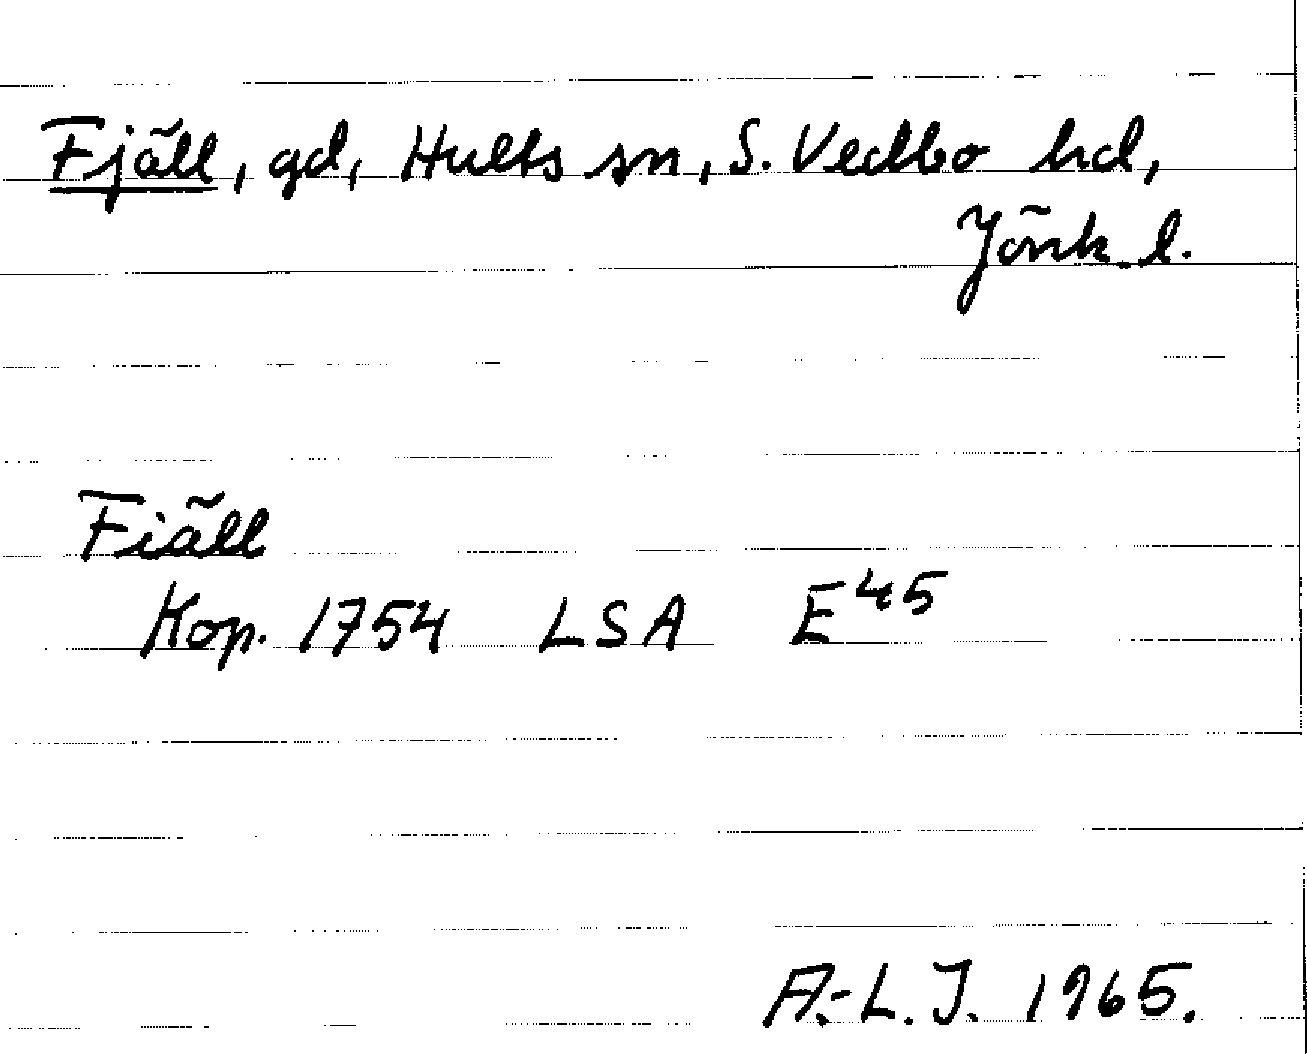 Fjäll, gd, Hults sn, S. Vedbo hd,
Jönk. l.
Fiäll
Kop. 1754 LSA E45
A.-L. J. 1965.